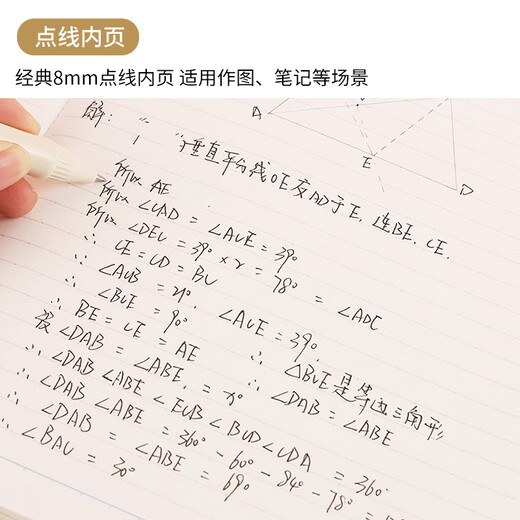 点线内页
经典8mm点线内页 适用作图、笔记等场景
A
E
D
解：
垂直平分线OE交AD于E，连BE、CE.
所以 AE
所以 ∠CAD = ∠ACE = 39°
所以 ∠DEC = 39° × 2 = 78° = ∠ADC
∴ CE = CD = BC
∴ ∠ACB = 21° ∠ACE = 39°
∴ ∠BCE = 90° ∴ △BCE是等边三角形
∴ BE = CE = AE ∴ ∠DAB = ∠ABE
设 ∠DAB = ∠ABE = x°
∴ ∠DAB ∠ABE < EUB < BUD < CDA = 360°
∴ ∠DAB ∠ABE = 360° - 60° - 84° - 78° =
∴ ∠DAB = ∠ABE = 69°
∴ ∠BAC = 30°